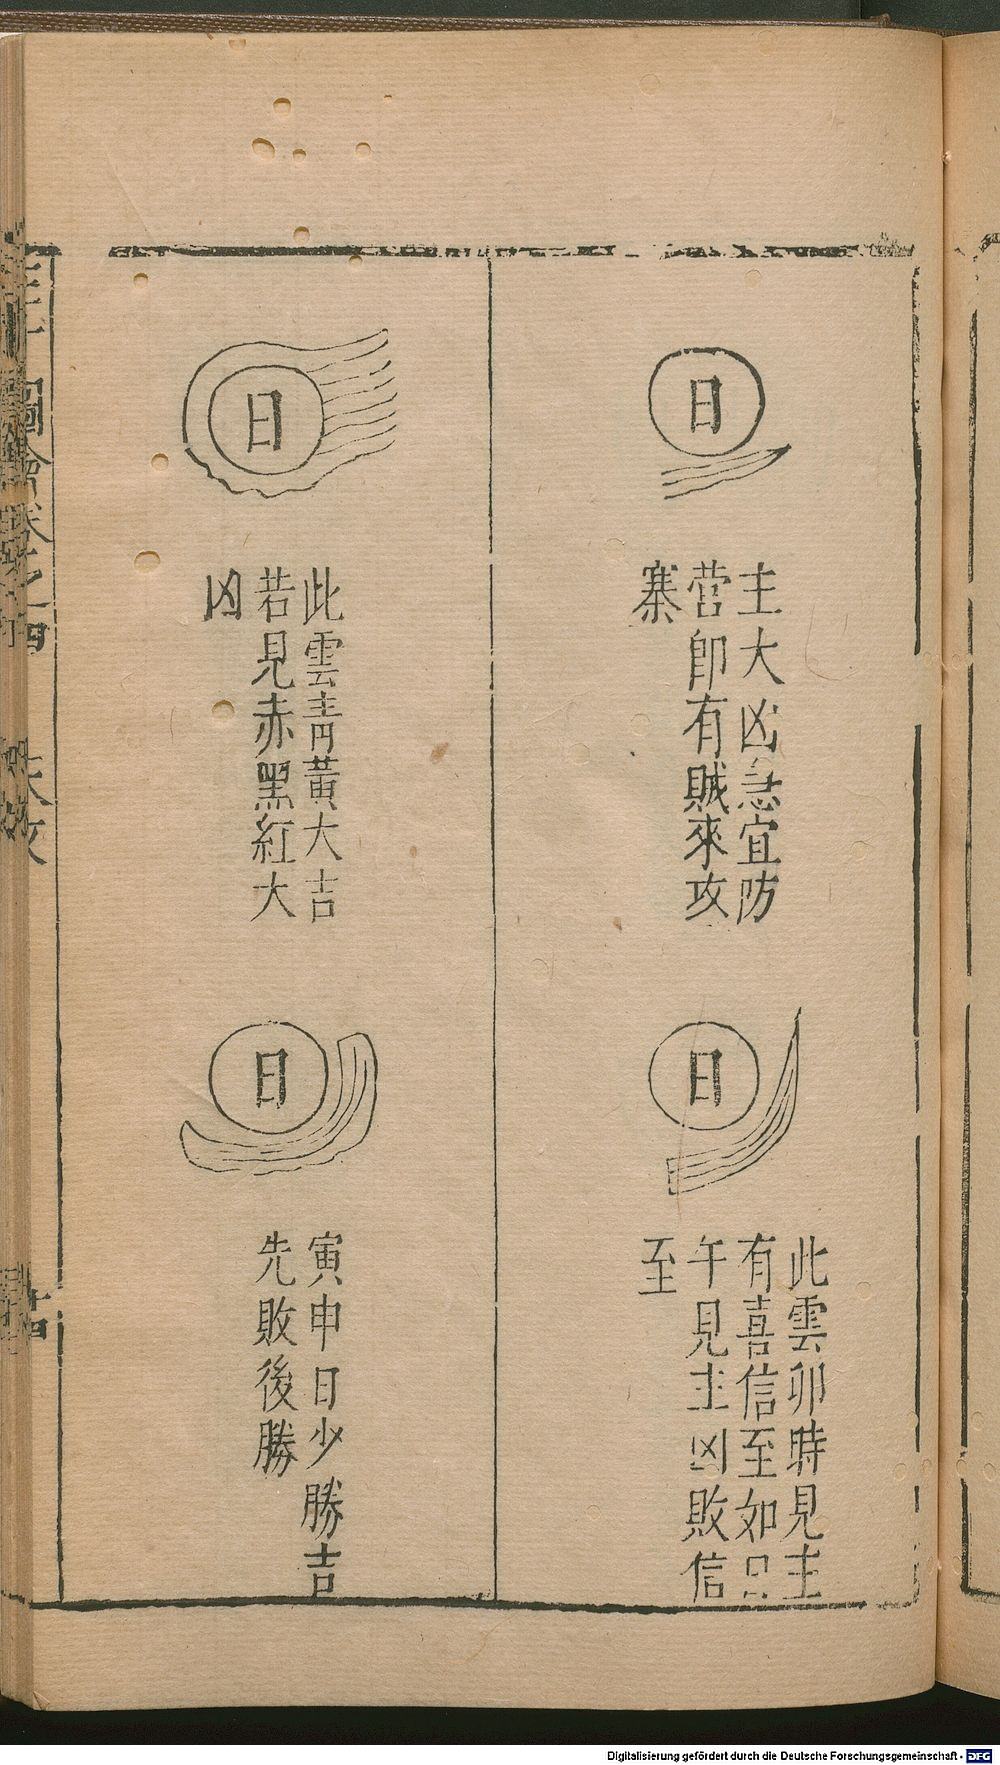 日
主大凶急宜防
营即有賊來攻
寨
日
此雲卯時見主
有喜信至如
午見主凶敗信
至
日
此雲青黃大吉
若見赤黑紅大
凶
日
寅申日少勝吉
先敗後勝
圖會卷之四
天文
十四
Digitalisierung gefördert durch die Deutsche Forschungsgemeinschaft - DFG